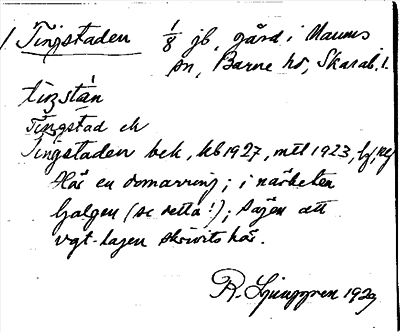 1 Tingstaden 1/8 jb, gård i Naums
sn, Barne hd, Skarab. l.
tiŋstán
Tingstad ek
Tingstaden bek, kb 1927, mtl 1923,
Här en domarring; i närheten
Galgen (se detta!); sägen att
vgt-lagen skrivits här.
R. Ljunggren 1929